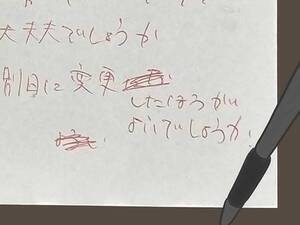 大丈夫でしょうか
別日に変更
したほうがい
よいでしょうか